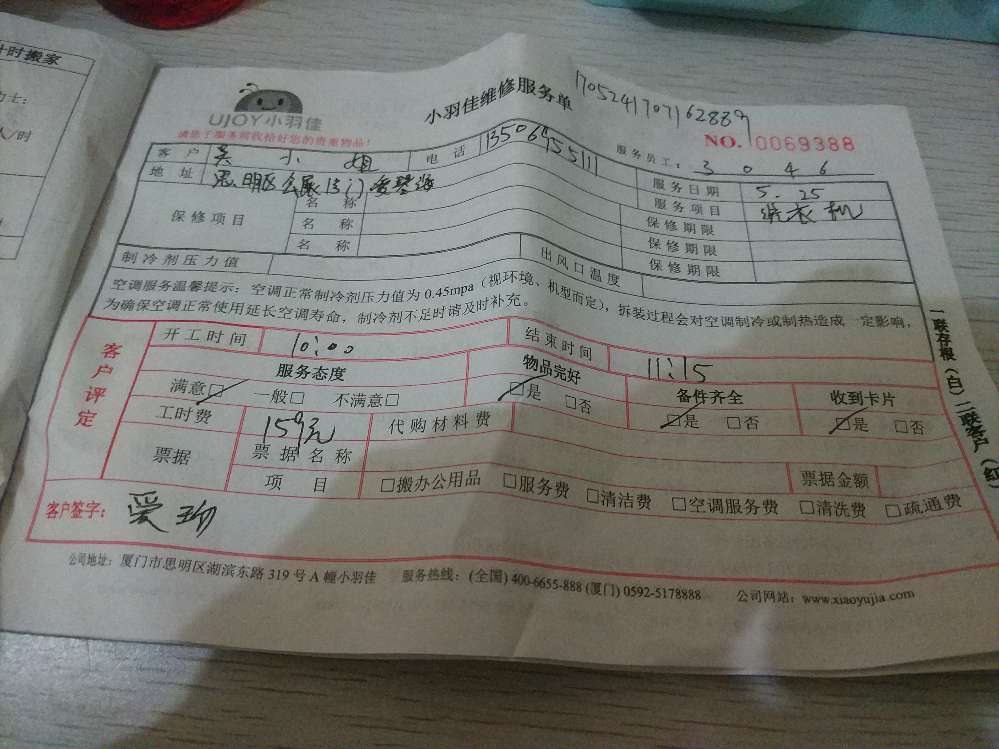 计时搬家
UJOY小羽佳
小羽佳维修服务单
170524170716288​9
请您于服务前收拾好您的贵重物品!
NO. 0069388
客户 吴小姐 电话 13506955111 服务员工: 3046
地址 思明区 服务日期 5.25
保修项目 名称 服务项目 洗衣机
名称 保修期限
名称 保修期限
保修期限
制冷剂压力值 出风口温度
空调服务温馨提示:空调正常制冷剂压力值为 0.45mpa(视环境、机型而定),拆装过程会对空调制冷或制热造成一定影响,
为确保空调正常使用延长空调寿命,制冷剂不足时请及时补充。
客户评定
开工时间 10:00 结束时间 11:15
服务态度 物品完好 备件齐全 收到卡片
满意□ 一般□ 不满意□ □是 □否 □是 □否 □是 □否
工时费 159元 代购材料费
票据 票据名称 票据金额
项目 □搬办公用品 □服务费 □清洁费 □空调服务费 □清洗费 □疏通费
客户签字: 爱珍
一联存根(白)二联客户(红)
公司地址:厦门市思明区湖滨东路 319 号 A 幢小羽佳 服务热线:(全国) 400-6655-888 (厦门) 0592-5178888 公司网站:www.xiaoyujia.com